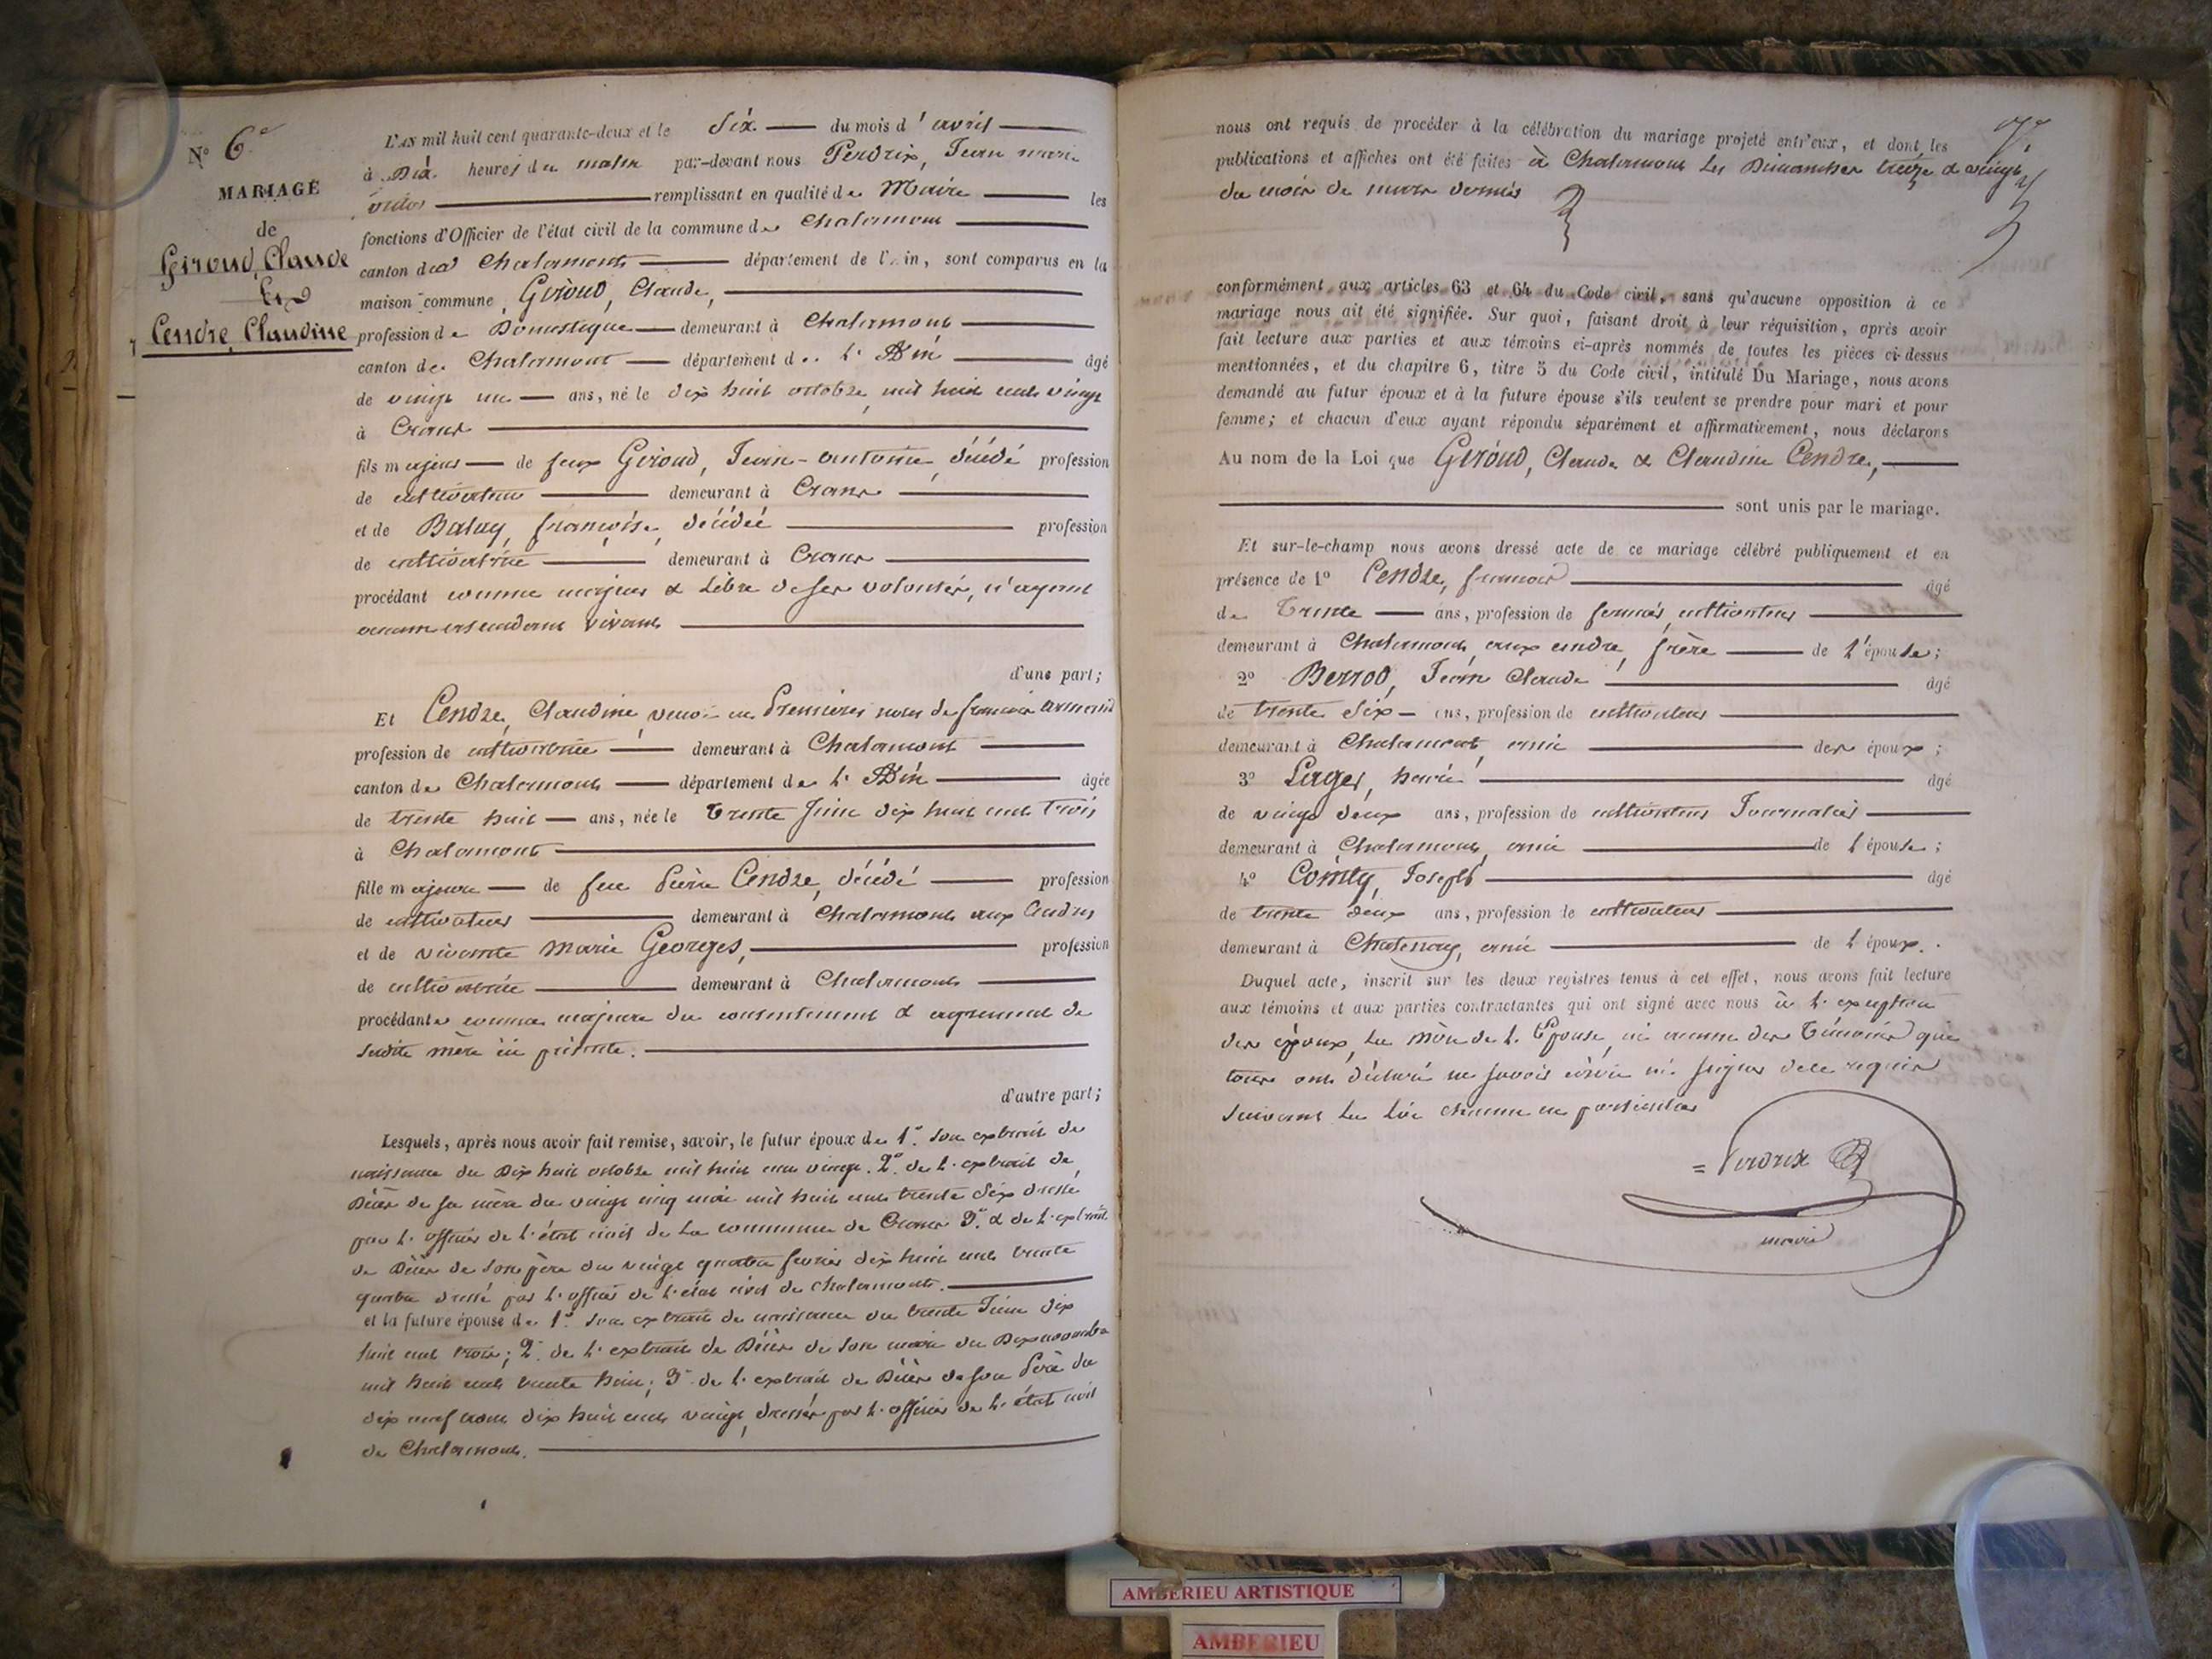 N° 6e
MARIAGE
de
Giroud, Claude
Et
Cendre, Claudine
L'AN mil huit cent quarante-deux et le Six du mois d'avril
à Dix heures du matin par-devant nous Perdrix, Jean marie
remplissant en qualité de Maire les
fonctions d'Officier de l'état civil de la commune de Chalamont
canton de Chalamont département de l'Ain, sont comparus en la
maison commune, Giroud, Claude,
profession de Domestique demeurant à Chalamont
canton de Chalamont département de l'Ain âgé
de vingt un ans, né le dix huit octobre mil huit cent vingt
à Crans
fils majeur de feux Giroud, Jean-antoine, décédé profession
de cultivateur demeurant à Crans
et de Balay, françoise, décédée profession
de cultivatrice demeurant à Crans
procédant comme majeur & libre de ses volontés, n'ayant
aucun ascendant vivant
d'une part;
Et Cendre, Claudine, veuve en Premières noces de françois
profession de cultivatrice demeurant à Chalamont
canton de Chalamont département de l'Ain âgée
de trente huit ans, née le trente Juin dix huit cent trois
à Chalamont
fille majeure de feu Pierre Cendre, décédé profession
de cultivateur demeurant à Chalamont aux Cendres
et de vivante marie Georges, profession
de cultivatrice demeurant à Chalamont
procédante comme majeure du consentement & agrément de
sadite mère ici présente.
d'autre part;
Lesquels, après nous avoir fait remise, savoir, le futur époux de 1° son extrait de
naissance du Dix huit octobre mil huit cent vingt. 2° de l'extrait de
Décès de sa mère du vingt cinq mai mil huit cent trente six dressé
par l'officier de l'état civil de la commune de Crans 3° & de l'extrait
de Décès de son père du vingt quatre février dix huit cent trente
quatre dressé par l'officier de l'état civil de Chalamont.
et la future épouse de 1° son extrait de naissance du trente Juin dix
huit cent trois; 2° de l'extrait de Décès de son mari du Dix novembre
mil huit cent trente huit; 3° de l'extrait de Décès de son Père du
dix neuf août dix huit cent vingt, dressés par l'officier de l'état civil
de Chalamont.
nous ont requis de procéder à la célébration du mariage projeté entr'eux, et dont les
publications et affiches ont été faites à Chalamont les Dimanches treize & vingt
du mois de mars dernier
conformément aux articles 63 et 64 du Code civil, sans qu'aucune opposition à ce
mariage nous ait été signifiée. Sur quoi, faisant droit à leur réquisition, après avoir
fait lecture aux parties et aux témoins ci-après nommés de toutes les pièces ci-dessus
mentionnées, et du chapitre 6, titre 5 du Code civil, intitulé Du Mariage, nous avons
demandé au futur époux et à la future épouse s'ils veulent se prendre pour mari et pour
femme; et chacun d'eux ayant répondu séparément et affirmativement, nous déclarons
Au nom de la Loi que Giroud, Claude & Claudine Cendre,
sont unis par le mariage.
Et sur-le-champ nous avons dressé acte de ce mariage célébré publiquement et en
présence de 1° Cendre, françois âgé
de Trente ans, profession de fermier cultivateur
demeurant à Chalamont, aux cendre, frère de l'épouse;
2° Berrod, Jean Claude âgé
de trente six ans, profession de cultivateur
demeurant à Chalamont, ami des époux;
3° âgé
de vingt deux ans, profession de cultivateur Journalier
demeurant à Chalamont, ami de l'épouse;
4° Comty, Joseph âgé
de trente deux ans, profession de cultivateur
demeurant à Chatenay, ami de l'époux.
Duquel acte, inscrit sur les deux registres tenus à cet effet, nous avons fait lecture
aux témoins et aux parties contractantes qui ont signé avec nous à l'exception
des époux, la mère de l'Epouse, ni aucun des Témoins qui
tous ont déclaré ne savoir écrire ni signer de ce requis
suivant la loi chacun en particulier
= Perdrix
maire
AMBERIEU ARTISTIQUE
AMBERIEU